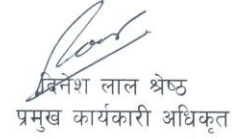 दिनेश लाल श्रेष्ठ
प्रमुख कार्यकारी अधिकृत